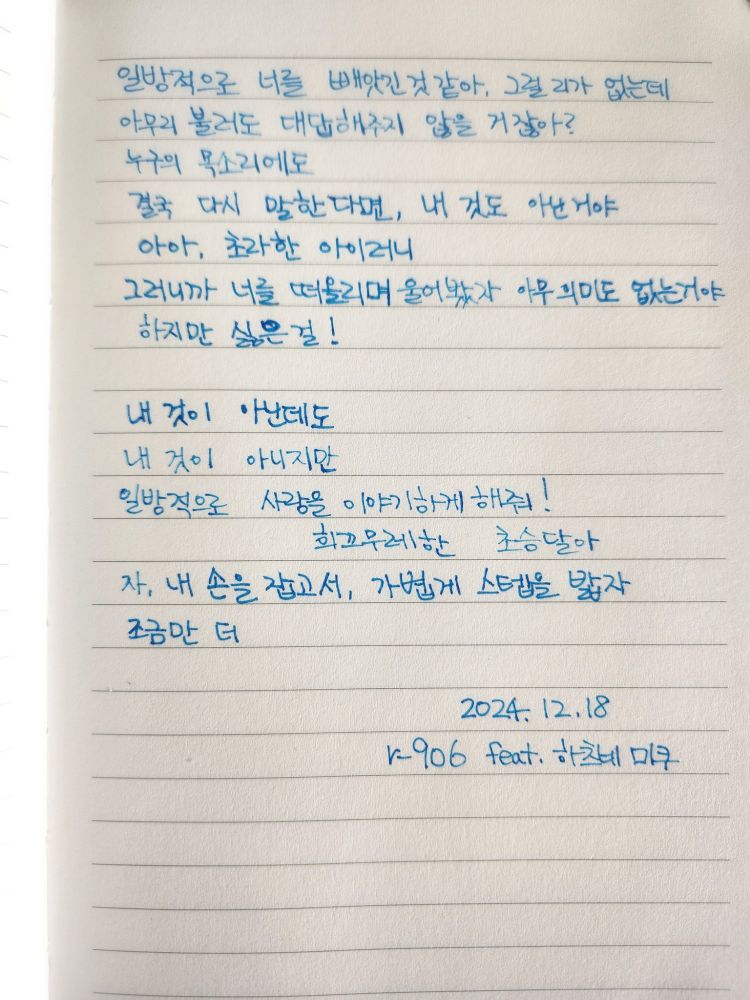 일방적으로 너를 빼앗긴것같아. 그럴리가 없는데
아무리 불러도 대답해주지 않을 거잖아?
누구의 목소리에도
결국 다시 말한다면, 내 것도 아닌거야
아아, 초라한 아이러니
그러니까 너를 떠올리며 울어봤자 아무의미도 없는거야
하지만 싫은걸!
내 것이 아닌데도
내 것이 아니지만
일방적으로 사랑을 이야기하게해줘!
희끄무레한 초승달아
자, 내 손을 잡고서, 가볍게 스텝을 밟자
조금만 더
2024. 12. 18
r-906 feat. 하츠네 미쿠